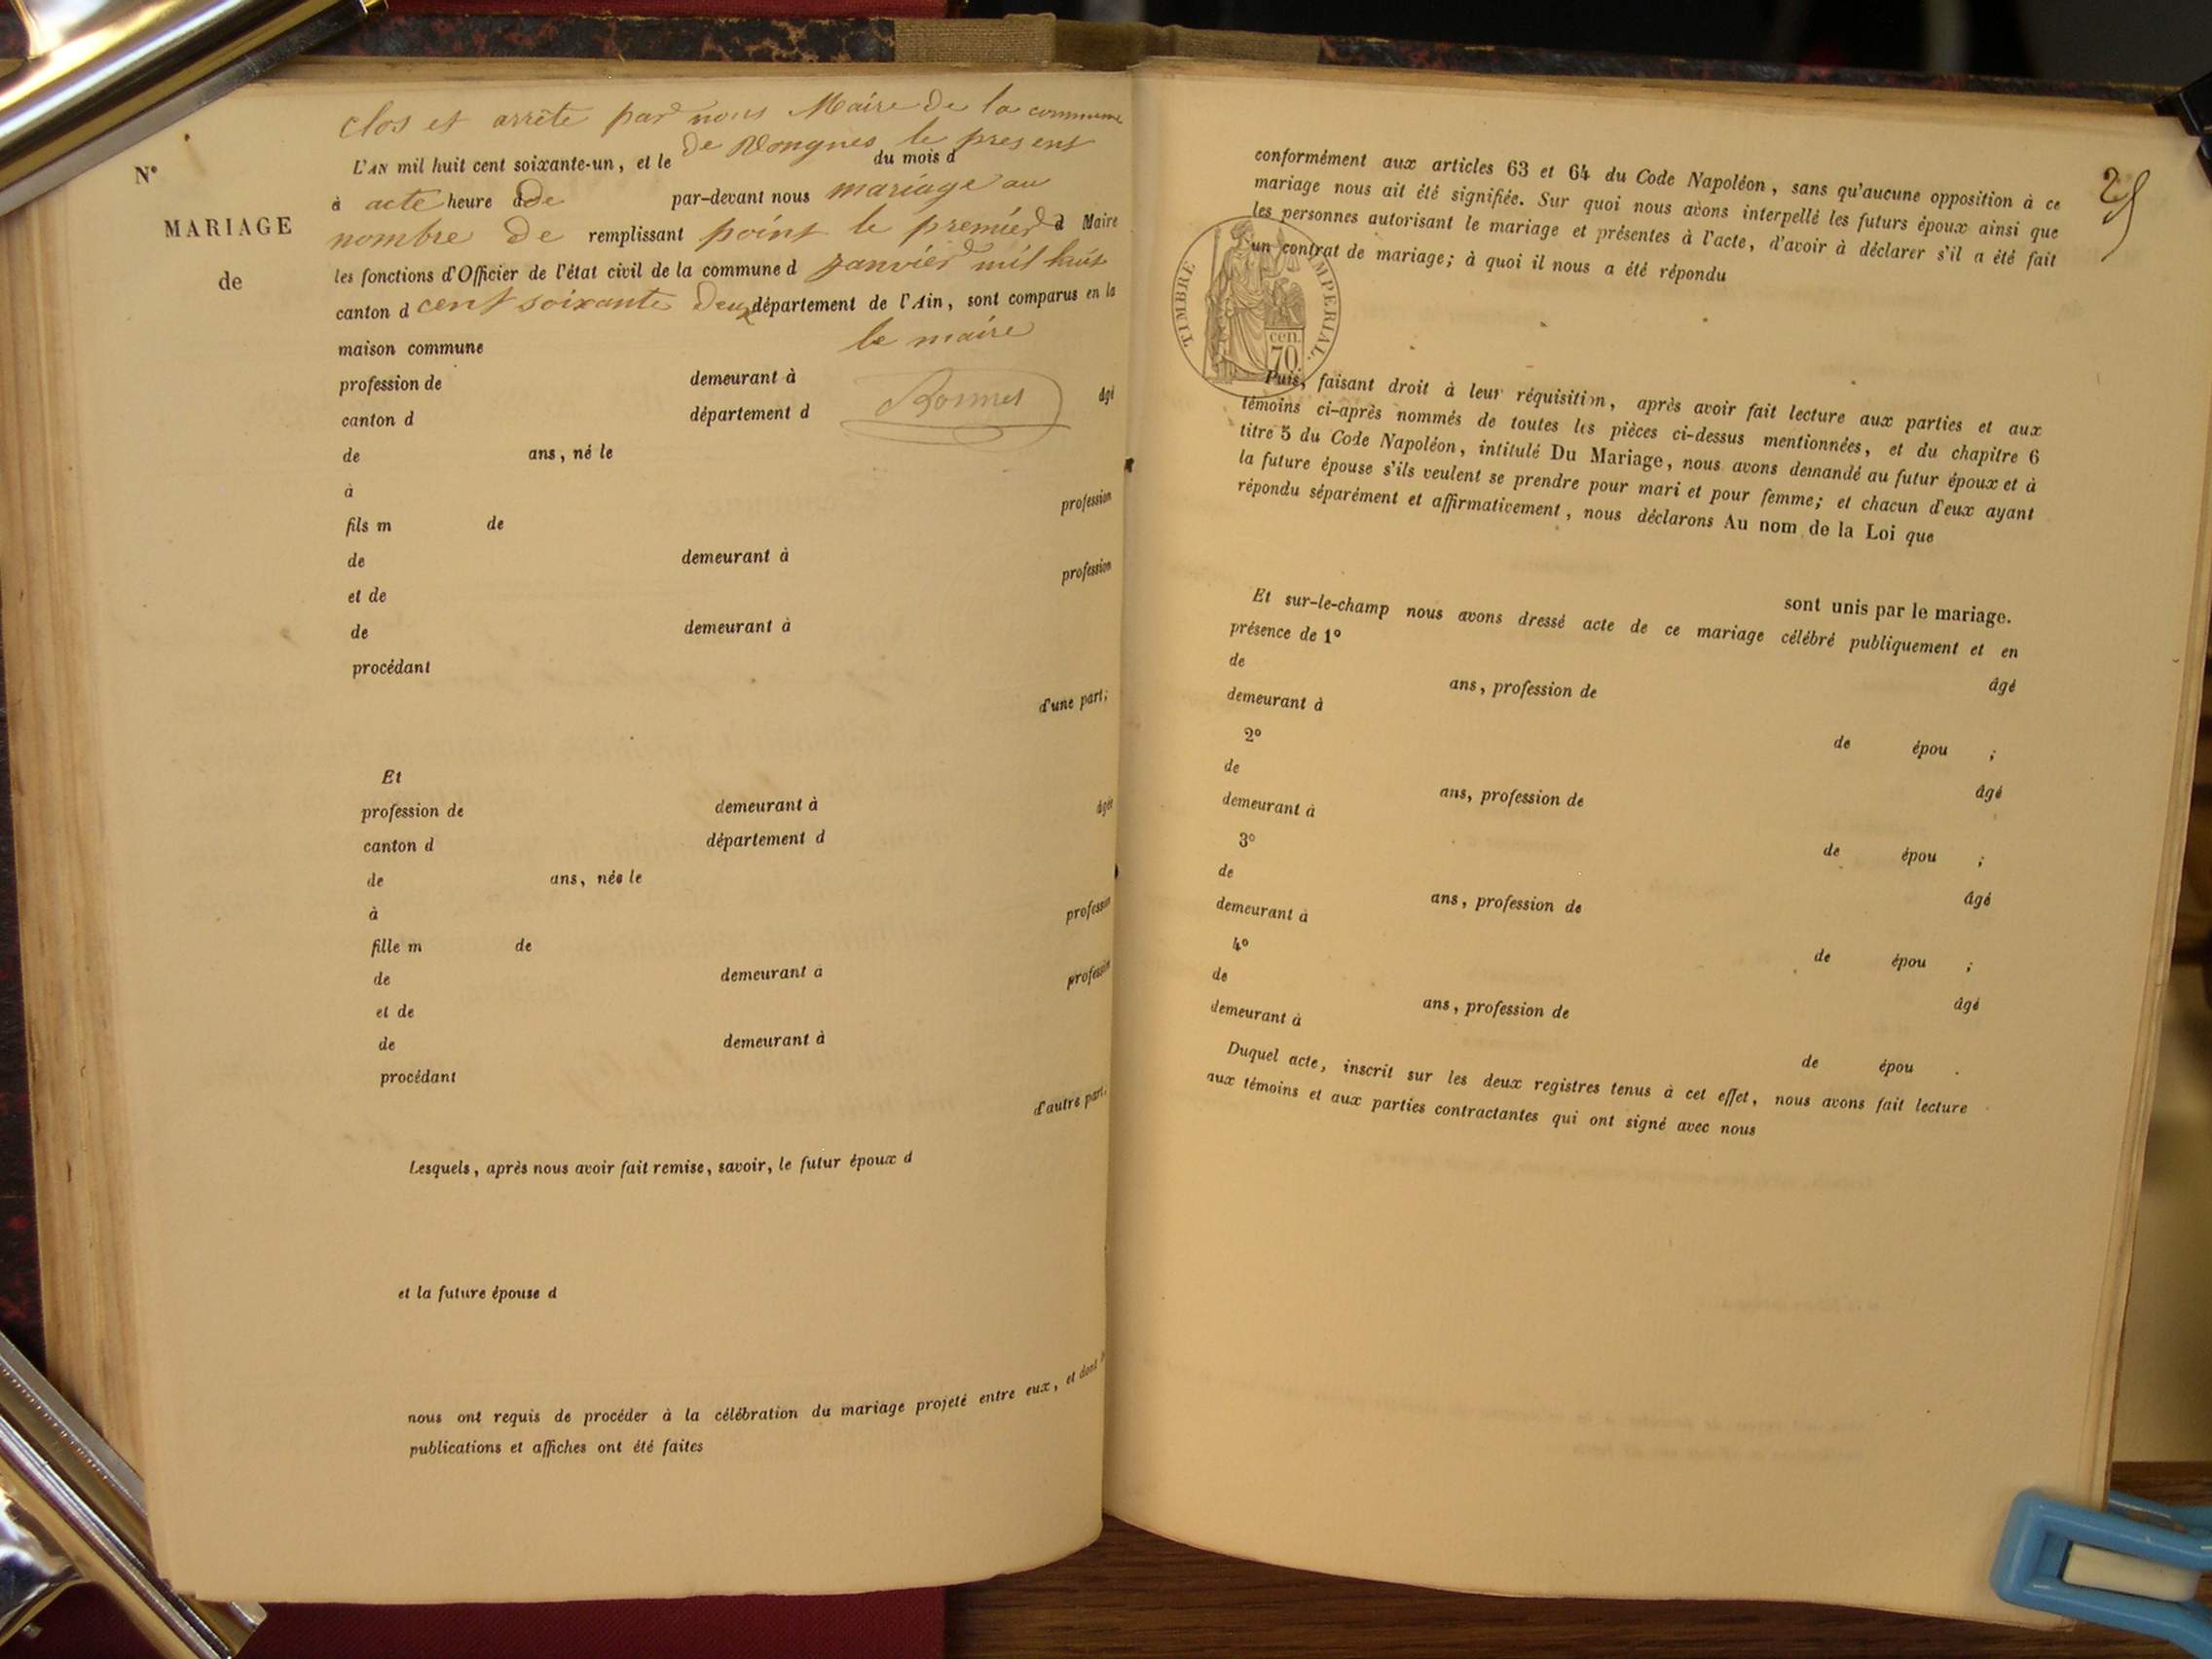 clos et arrête par nous Maire de la commune
de Vongnes le present
N°
L'AN mil huit cent soixante-un, et le du mois d
à acte heure d de par-devant nous mariage au
MARIAGE
nombre de remplissant point le premier d Maire
de
les fonctions d'Officier de l'état civil de la commune d janvier mil huit
canton d cent soixante deux département de l'Ain, sont comparus en la
maison commune le maire
profession de demeurant à
canton d département d âgé
de ans, né le
à
fils m de profession
de demeurant à
et de profession
de demeurant à
procédant
d'une part;
Et
profession de demeurant à âgée
canton d département d
de ans, née le
à
fille m de profession
de demeurant à
et de profession
de demeurant à
procédant
d'autre part.
Lesquels, après nous avoir fait remise, savoir, le futur époux d
et la future épouse d
nous ont requis de procéder à la célébration du mariage projeté entre eux, et dont
publications et affiches ont été faites
25
conformément aux articles 63 et 64 du Code Napoléon, sans qu'aucune opposition à ce
mariage nous ait été signifiée. Sur quoi nous avons interpellé les futurs époux ainsi que
les personnes autorisant le mariage et présentes à l'acte, d'avoir à déclarer s'il a été fait
un contrat de mariage; à quoi il nous a été répondu
TIMBRE IMPERIAL.
cen.
70
Puis, faisant droit à leur réquisition, après avoir fait lecture aux parties et aux
témoins ci-après nommés de toutes les pièces ci-dessus mentionnées, et du chapitre 6
titre 5 du Code Napoléon, intitulé Du Mariage, nous avons demandé au futur époux et à
la future épouse s'ils veulent se prendre pour mari et pour femme; et chacun d'eux ayant
répondu séparément et affirmativement, nous déclarons Au nom de la Loi que
sont unis par le mariage.
Et sur-le-champ nous avons dressé acte de ce mariage célébré publiquement et en
présence de 1°
de ans, profession de âgé
demeurant à
2° de épou ;
de ans, profession de âgé
demeurant à
3° de épou ;
de ans, profession de âgé
demeurant à
4° de épou ;
de ans, profession de âgé
demeurant à
de épou .
Duquel acte, inscrit sur les deux registres tenus à cet effet, nous avons fait lecture
aux témoins et aux parties contractantes qui ont signé avec nous